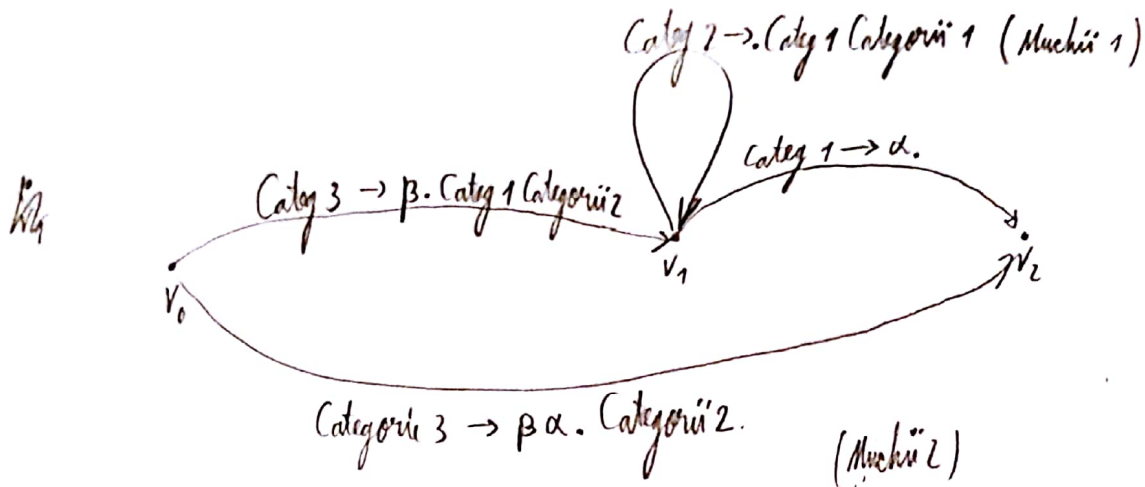 Categ 2 → . Categ 1 Categorii 1 (Muchii 1)
Categ 1 → α.
Categ 3 → β. Categ 1 Categorii 2
V₀
V₁
V₂
Categorie 3 → β α. Categorii 2.
(Muchii 2)